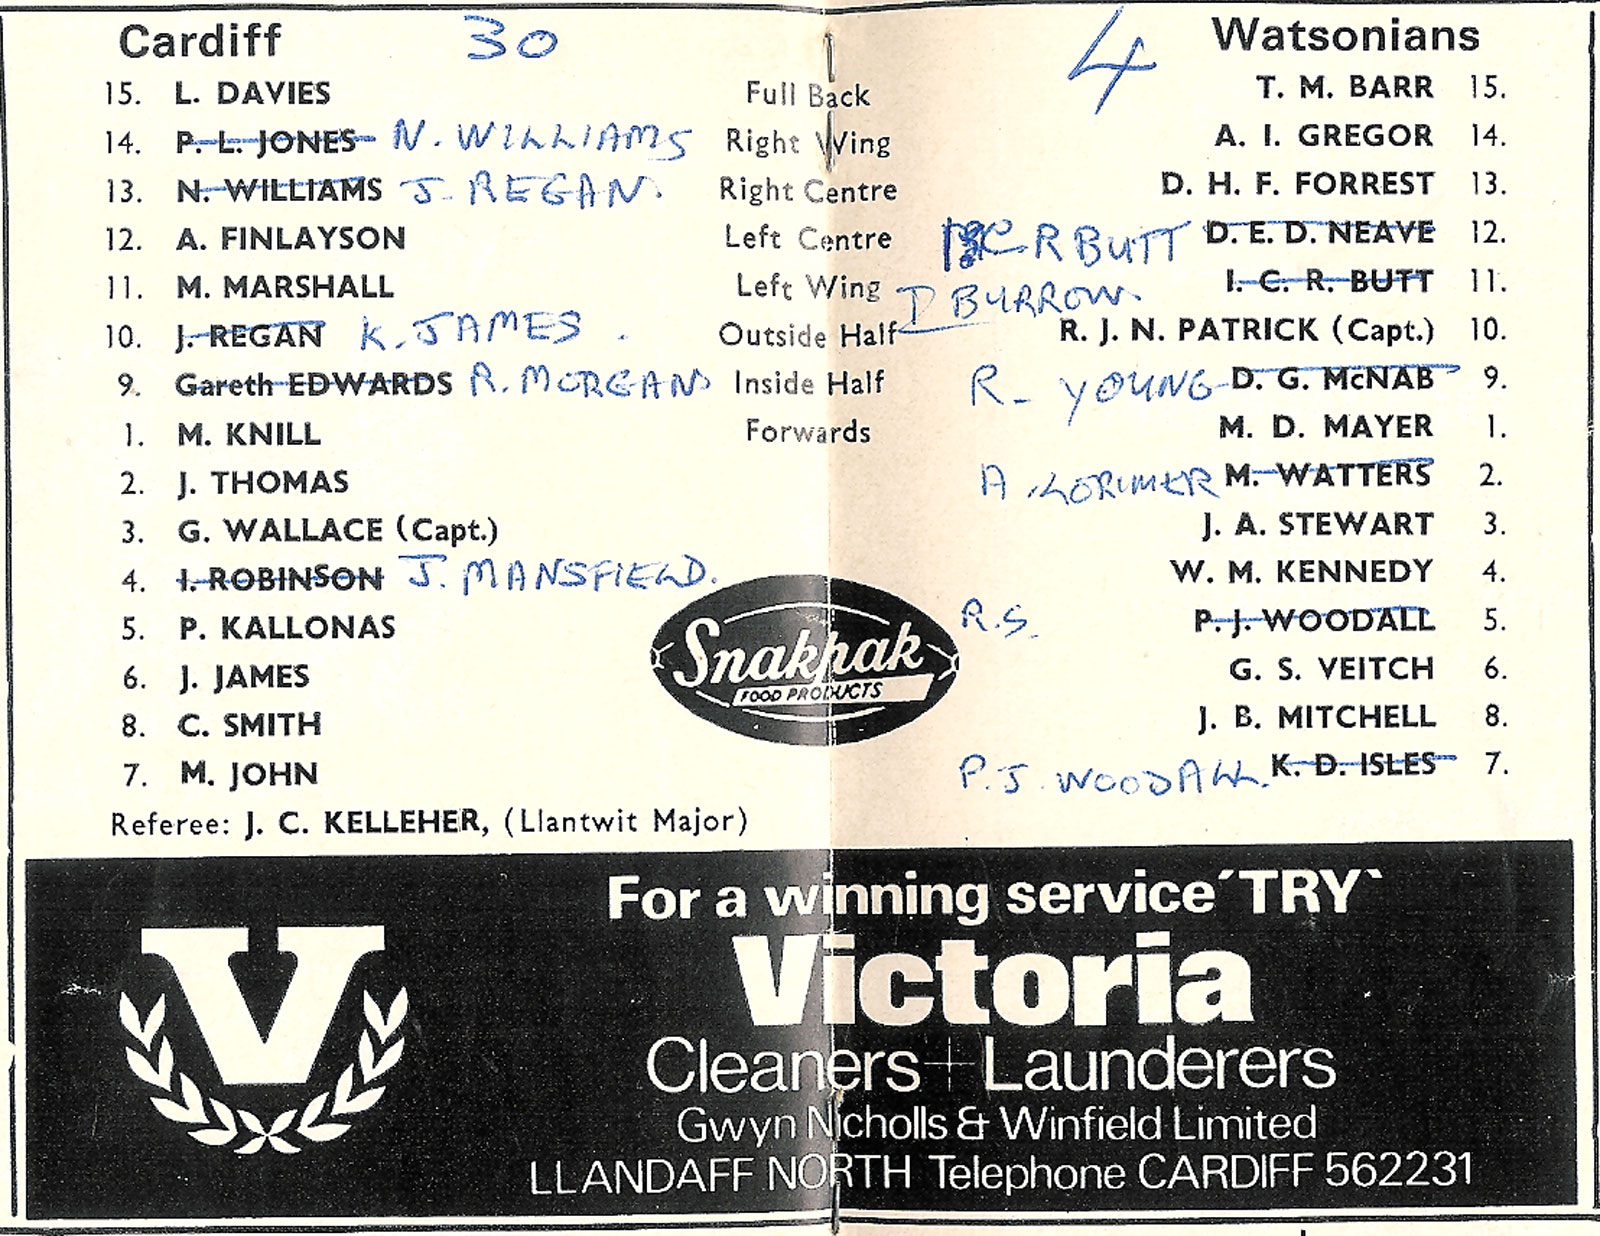 Cardiff 30
15. L. DAVIES Full Back
14. P. L. JONES N. WILLIAMS Right Wing
13. N. WILLIAMS J. REGAN. Right Centre
12. A. FINLAYSON Left Centre
11. M. MARSHALL Left Wing
10. J. REGAN K. JAMES. Outside Half
9. Gareth EDWARDS R. MORGAN Inside Half
1. M. KNILL Forwards
2. J. THOMAS
3. G. WALLACE (Capt.)
4. I. ROBINSON J. MANSFIELD.
5. P. KALLONAS
6. J. JAMES
8. C. SMITH
7. M. JOHN
Referee: J. C. KELLEHER, (Llantwit Major)
4 Watsonians
T. M. BARR 15.
A. I. GREGOR 14.
D. H. F. FORREST 13.
C R BUTT D. E. D. NEAVE 12.
I. C. R. BUTT 11.
D BURROW
R. J. N. PATRICK (Capt.) 10.
R. YOUNG D. G. McNAB 9.
M. D. MAYER 1.
A. LORIMER M. WATTERS 2.
J. A. STEWART 3.
W. M. KENNEDY 4.
R.S. P. J. WOODALL 5.
G. S. VEITCH 6.
J. B. MITCHELL 8.
P. J. WOODALL. K. D. ISLES 7.
Snakpak
FOOD PRODUCTS
For a winning service ´TRY`
Victoria
Cleaners + Launderers
Gwyn Nicholls & Winfield Limited
LLANDAFF NORTH Telephone CARDIFF 562231